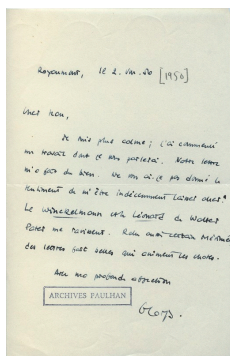 Royaumont, le 2. VIII. 50 [1950]
Cher Jean,
Je suis plus calme ; j'ai commencé
un travail dont je vous parlerai. Votre lettre
m'a fait du bien. Ne vous ai-je pas donné le
sentiment de m'être indécemment laissé aller ?
Le Winckelmann et le Léonard de Walter
Pater me ravissent. Relu aussi certain Mérimée
des lettres fort belles qui animent les choses.
Avec ma profonde affection
ARCHIVES PAULHAN